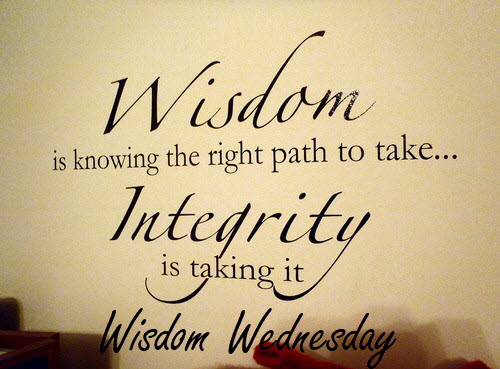 Wisdom
is knowing the right path to take...
Integrity
is taking it
Wisdom Wednesday